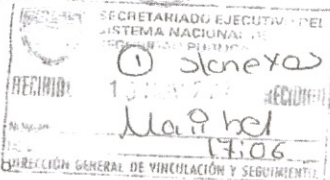 SECRETARIADO EJECUTIVO DEL
SISTEMA NACIONAL DE
SEGURIDAD PÚBLICA
① anexos
RECIBIDO
RECIBIDO
Maribel
17:06
DIRECCIÓN GENERAL DE VINCULACIÓN Y SEGUIMIENTO